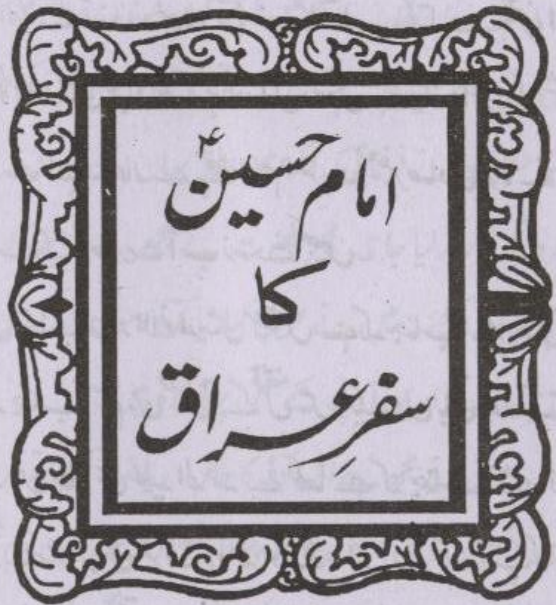 امام حسینؑ
کا
سفرِ عراق